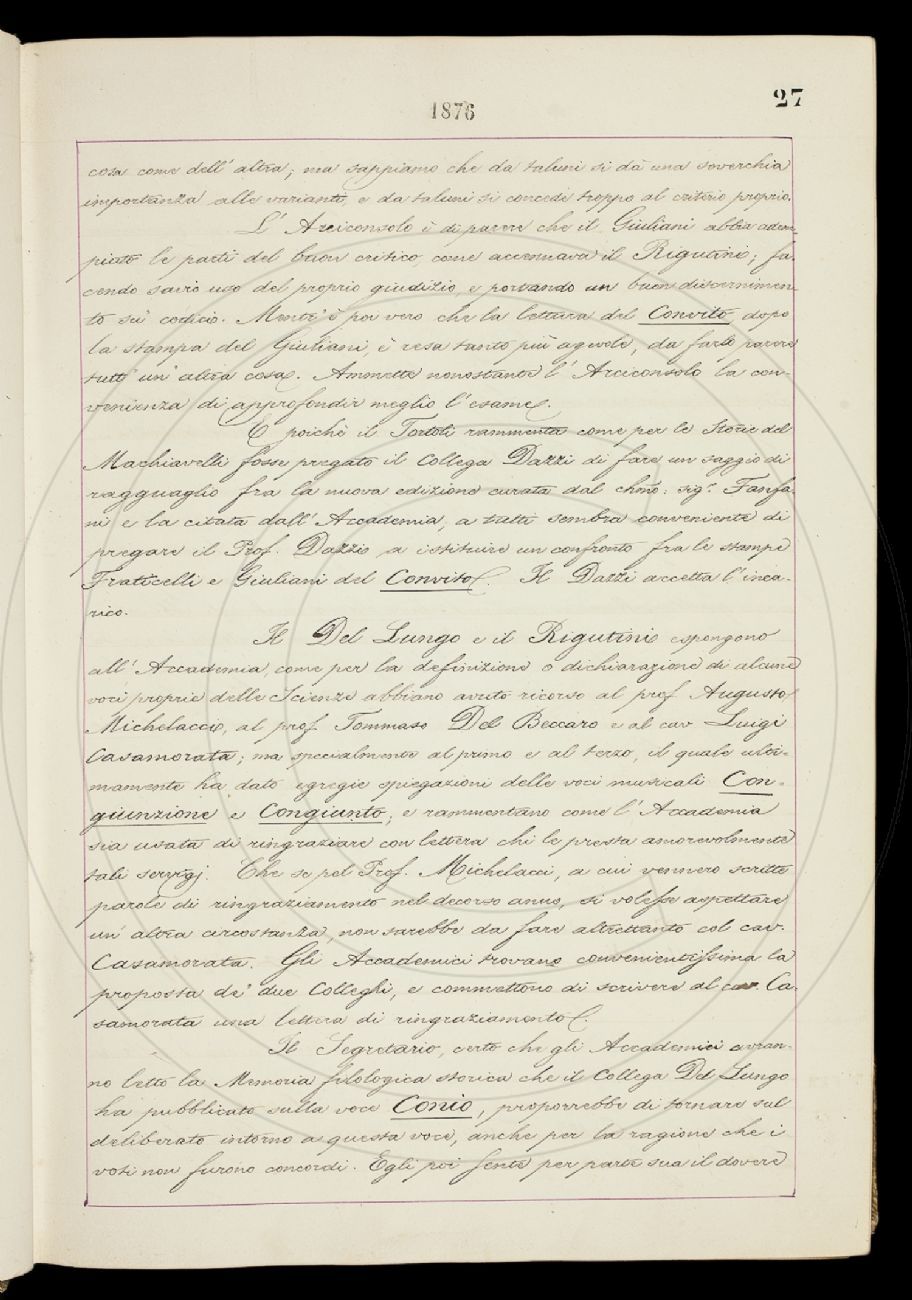 1876
27
cosa come dell' altra; ma sappiamo che da taluni si dà una soverchia
importanza alle varianti, e da taluni si concede troppo al criterio proprio.
L' Arciconsolo è di parere che il Giuliani abbia adem-
piuto le parti del buon critico, come accennava il Rigutini; fa-
cendo savio uso del proprio giudizio, e portando un buon discernimen-
to sui codici. Mente è poi vero che la lettura del Convito, dopo
la stampa del Giuliani, è resa tanto più agevole, da farlo parere
tutt' un' altra cosa. Ammette nonostante l' Arciconsolo la con-
venienza di approfondir meglio l' esame.
E poichè il Tortoli rammenta come per le Storie del
Machiavelli fosse pregato il Collega Dazzi di fare un saggio di
ragguaglio fra la nuova edizione curata dal chmo: sigr. Fanfa-
ni e la citata dall' Accademia, a tutti sembra conveniente di
pregare il Prof. Dazzi a istituire un confronto fra le stampe
Fraticelli e Giuliani del Convito. Il Dazzi accetta l' inca-
rico.
Il Del Lungo e il Rigutini espongono
all' Accademia, come per la definizione o dichiarazione di alcune
voci proprie delle Scienze abbiano avuto ricorso al prof Augusto
Michelacci, al prof. Tommaso Del Beccaro e al cav Luigi
Casamorata; ma specialmente al primo e al terzo, il quale ulti-
mamente ha dato egregie spiegazioni delle voci musicali Con-
giunzione e Congiunto; e rammentano come l' Accademia
sia usata di ringraziare con lettera chi le presta amorevolmente
tali servigj. Che se pel Prof. Michelacci, a cui vennero scritte
parole di ringraziamento nel decorso anno, si volesse aspettare
un' altra circostanza, non sarebbe da fare altrettanto col cav.
Casamorata. Gli Accademici trovano convenientissima la
proposta de' due Colleghi, e commettono di scrivere al cav. Ca-
samorata una lettera di ringraziamento.
Il Segretario, certo che gli Accademici avran-
no letto la Memoria filologica storica che il Collega Del Lungo
ha pubblicato sulla voce Conio, proporrebbe di tornare sul
deliberato intorno a questa voce, anche per la ragione che i
voti non furono concordi. Egli poi sente per parte sua il dovere